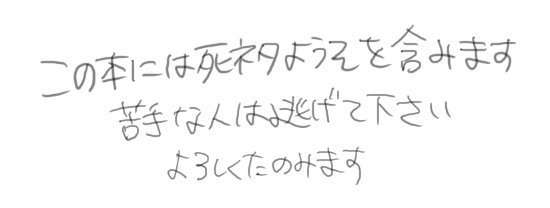 この本には死ネタようそを含みます
苦手な人は逃げて下さい
よろしくたのみます